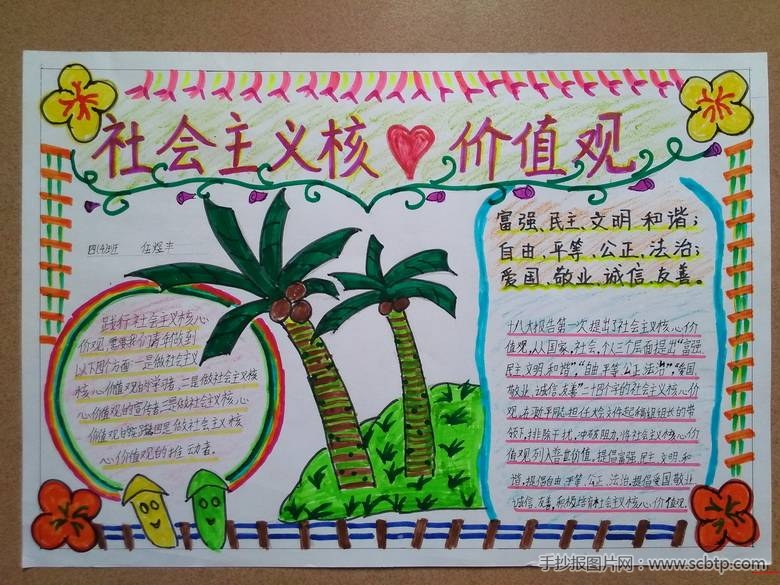 社会主义核 价值观
四(4)班 任煜丰
践行社会主义核心
价值观,需要我们青年做到
以下四个方面:一是做社会主义
核心价值观的学习者,二是做社会主义核
心价值观的宣传者,三是做社会主义核心
价值观的实践者,四是做社会主义核
心价值观的推动者。
富强、民主、文明、和谐;
自由、平等、公正、法治;
爱国、敬业、诚信、友善。
十八大报告第一次提出了社会主义核心价
值观,从国家,社会,个人三个层面提出"富强、
民主、文明、和谐","自由、平等、公正、法治","爱国、
敬业、诚信、友善"二十四个字的社会主义核心价
领下,排除干扰,冲破阻力,将社会主义核心价
值观列入普世价值。提倡富强、民主、文明、和
谐。提倡自由、平等、公正、法治,提倡爱国、敬业
诚信、友善,积极培育社会主义核心价值观。
手抄报图片网:www.scbtp.com